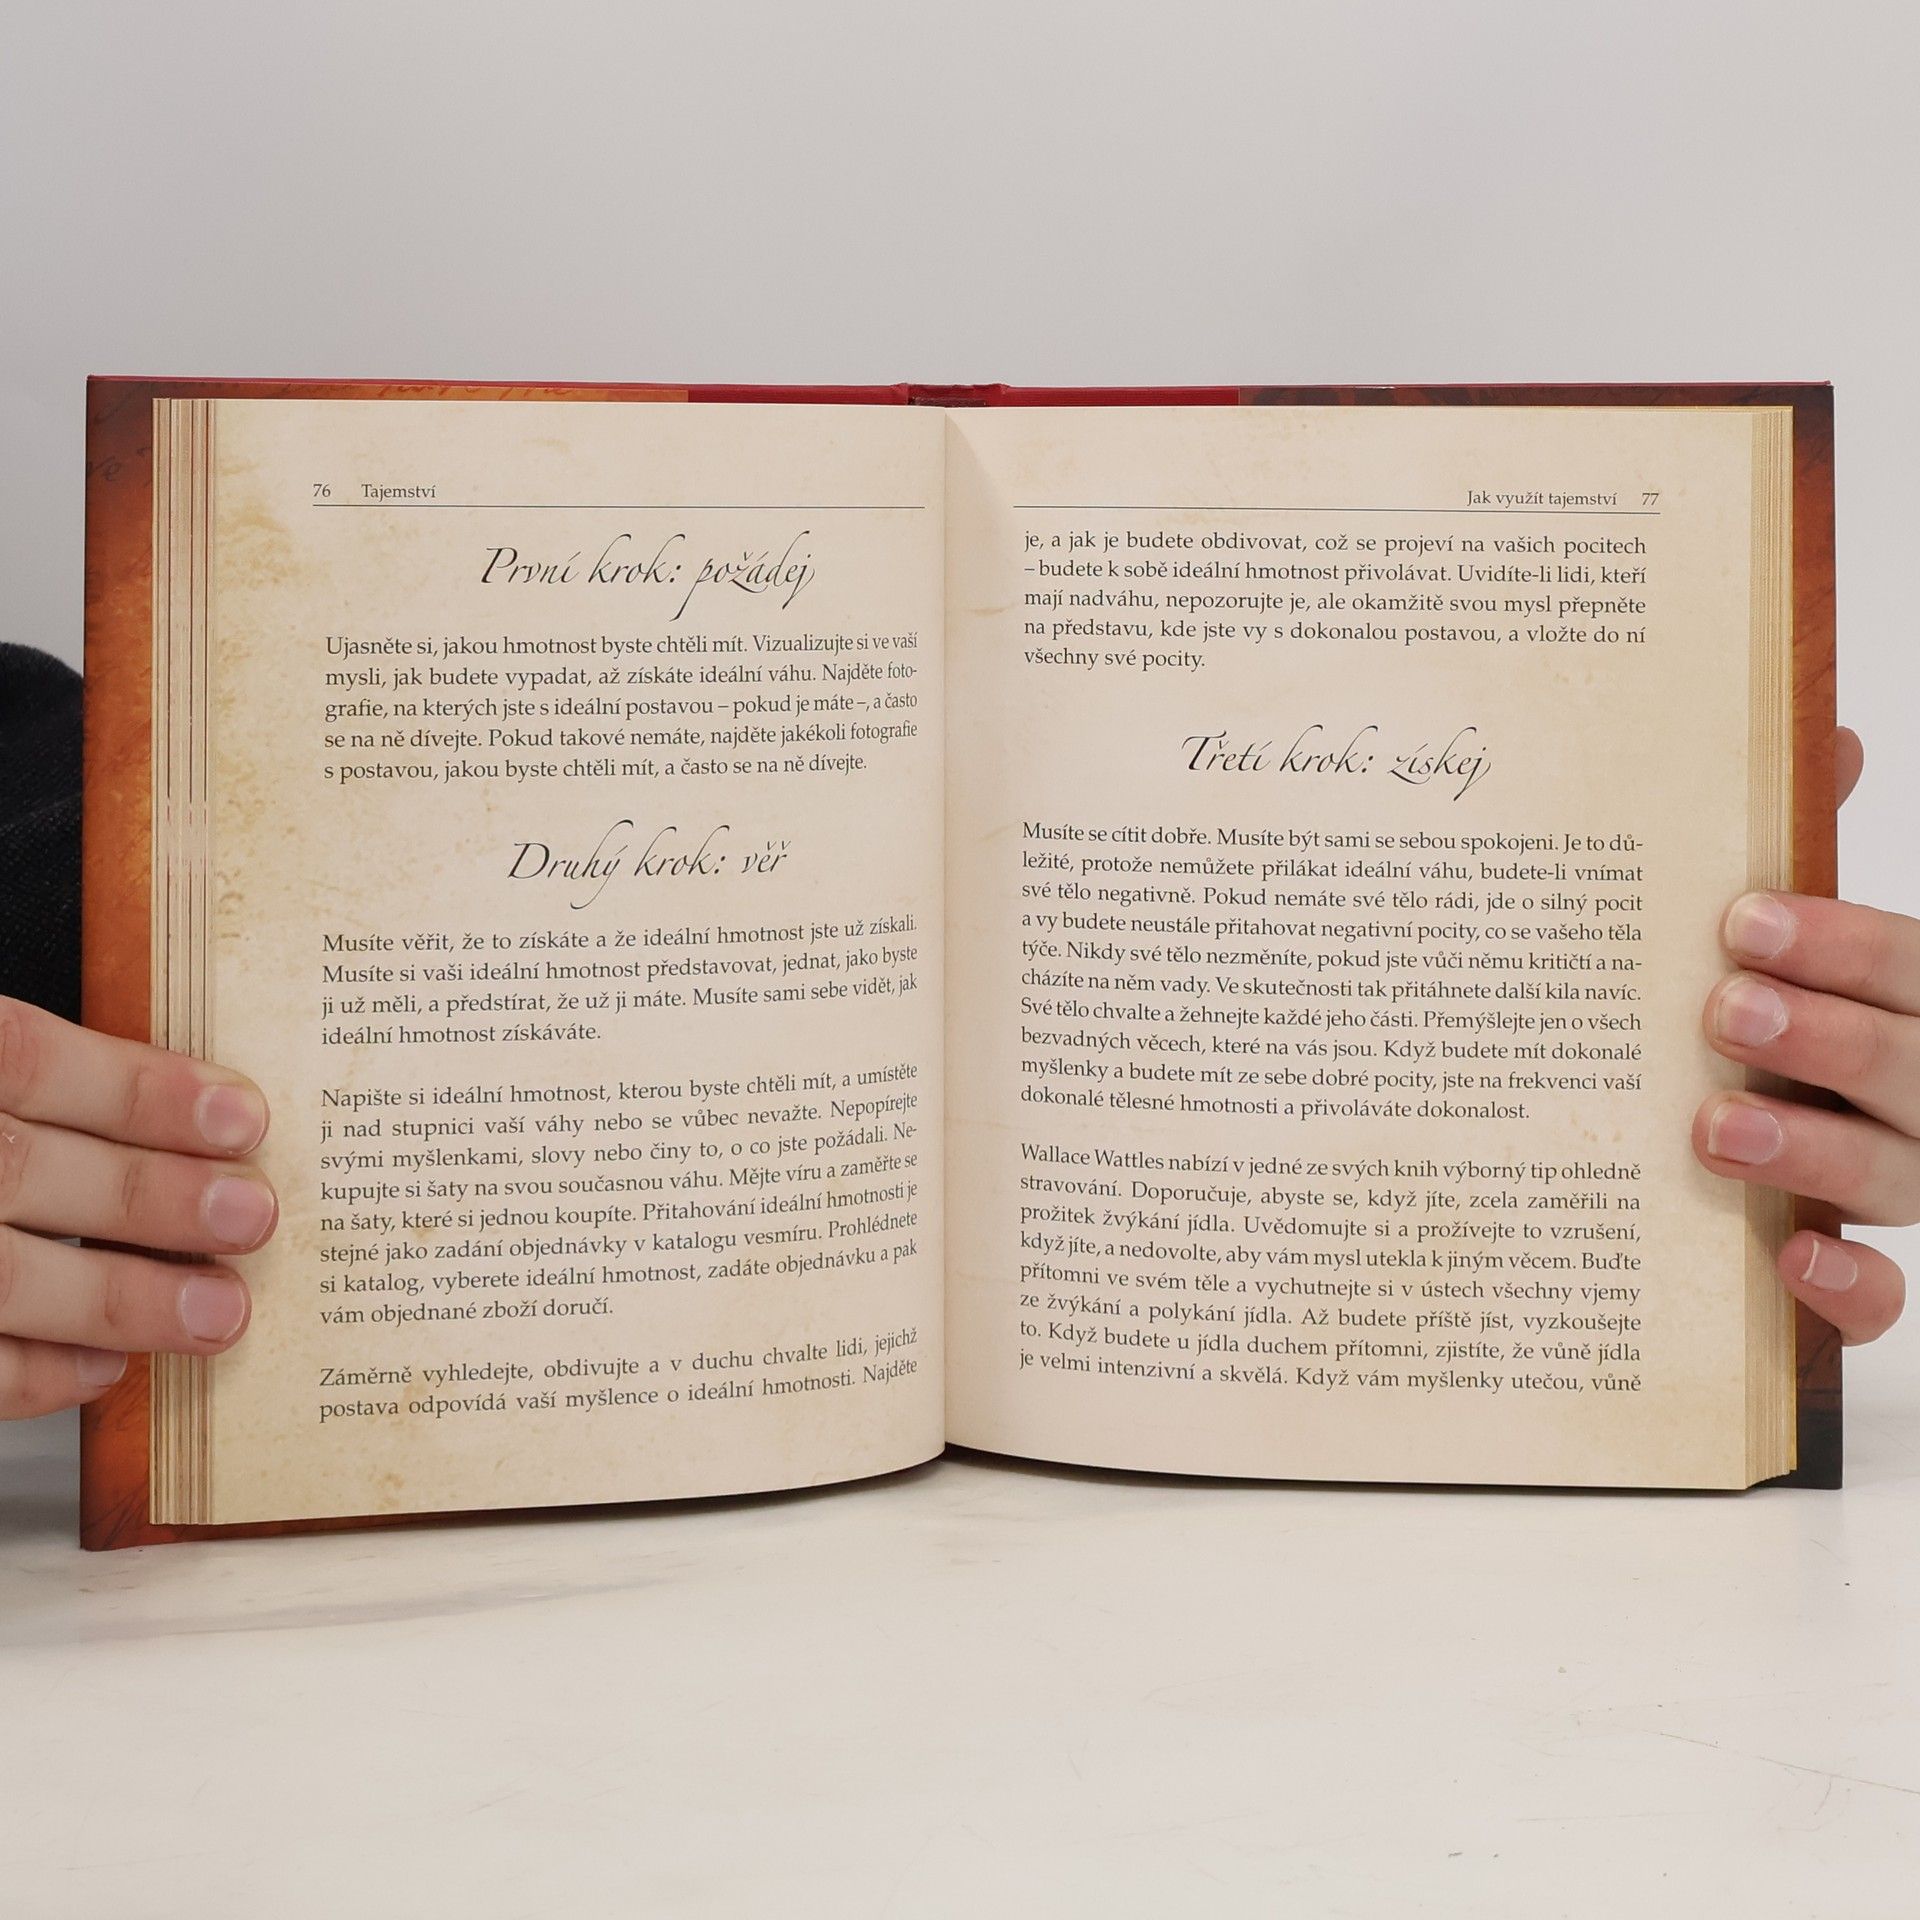 76 Tajemství
První krok: požádej
Ujasněte si, jakou hmotnost byste chtěli mít. Vizualizujte si ve vaší
mysli, jak budete vypadat, až získáte ideální váhu. Najděte foto-
grafie, na kterých jste s ideální postavou – pokud je máte –, a často
se na ně dívejte. Pokud takové nemáte, najděte jakékoli fotografie
s postavou, jakou byste chtěli mít, a často se na ně dívejte.
Druhý krok: věř
Musíte věřit, že to získáte a že ideální hmotnost jste už získali.
Musíte si vaši ideální hmotnost představovat, jednat, jako byste
ji už měli, a předstírat, že už ji máte. Musíte sami sebe vidět, jak
ideální hmotnost získáváte.
Napište si ideální hmotnost, kterou byste chtěli mít, a umístěte
ji nad stupnici vaší váhy nebo se vůbec nevažte. Nepopírejte
svými myšlenkami, slovy nebo činy to, o co jste požádali. Ne-
kupujte si šaty na svou současnou váhu. Mějte víru a zaměřte se
na šaty, které si jednou koupíte. Přitahování ideální hmotnosti je
stejné jako zadání objednávky v katalogu vesmíru. Prohlédnete
si katalog, vyberete ideální hmotnost, zadáte objednávku a pak
vám objednané zboží doručí.
Záměrně vyhledejte, obdivujte a v duchu chvalte lidi, jejichž
postava odpovídá vaší myšlence o ideální hmotnosti. Najděte
Jak využít tajemství 77
je, a jak je budete obdivovat, což se projeví na vašich pocitech
– budete k sobě ideální hmotnost přivolávat. Uvidíte-li lidi, kteří
mají nadváhu, nepozorujte je, ale okamžitě svou mysl přepněte
na představu, kde jste vy s dokonalou postavou, a vložte do ní
všechny své pocity.
Třetí krok: získej
Musíte se cítit dobře. Musíte být sami se sebou spokojeni. Je to dů-
ležité, protože nemůžete přilákat ideální váhu, budete-li vnímat
své tělo negativně. Pokud nemáte své tělo rádi, jde o silný pocit
a vy budete neustále přitahovat negativní pocity, co se vašeho těla
týče. Nikdy své tělo nezměníte, pokud jste vůči němu kritičtí a na-
cházíte na něm vady. Ve skutečnosti tak přitáhnete další kila navíc.
Své tělo chvalte a žehnejte každé jeho části. Přemýšlejte jen o všech
bezvadných věcech, které na vás jsou. Když budete mít dokonalé
myšlenky a budete mít ze sebe dobré pocity, jste na frekvenci vaší
dokonalé tělesné hmotnosti a přivoláváte dokonalost.
Wallace Wattles nabízí v jedné ze svých knih výborný tip ohledně
stravování. Doporučuje, abyste se, když jíte, zcela zaměřili na
prožitek žvýkání jídla. Uvědomujte si a prožívejte to vzrušení,
když jíte, a nedovolte, aby vám mysl utekla k jiným věcem. Buďte
přítomni ve svém těle a vychutnejte si v ústech všechny vjemy
ze žvýkání a polykání jídla. Až budete příště jíst, vyzkoušejte
to. Když budete u jídla duchem přítomni, zjistíte, že vůně jídla
je velmi intenzivní a skvělá. Když vám myšlenky utečou, vůně